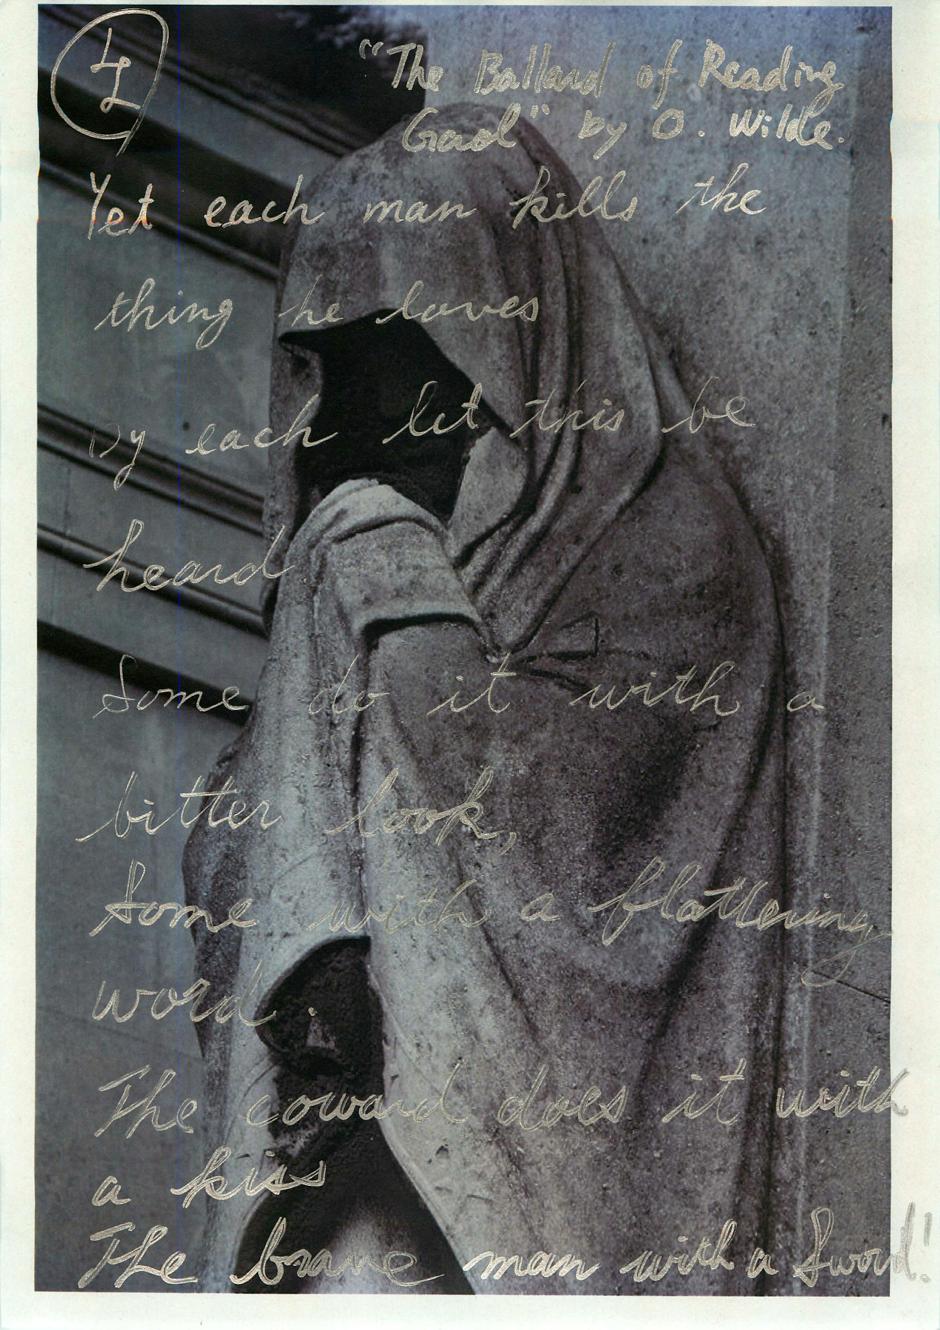 "The Ballard of Reading
Gaol" by O. Wilde.
Yet each man kills the
thing he loves
by each let this be
heard
Some do it with a
bitter look,
Some with a flattering
word.
The coward does it with
a kiss
The brave man with a Sword!